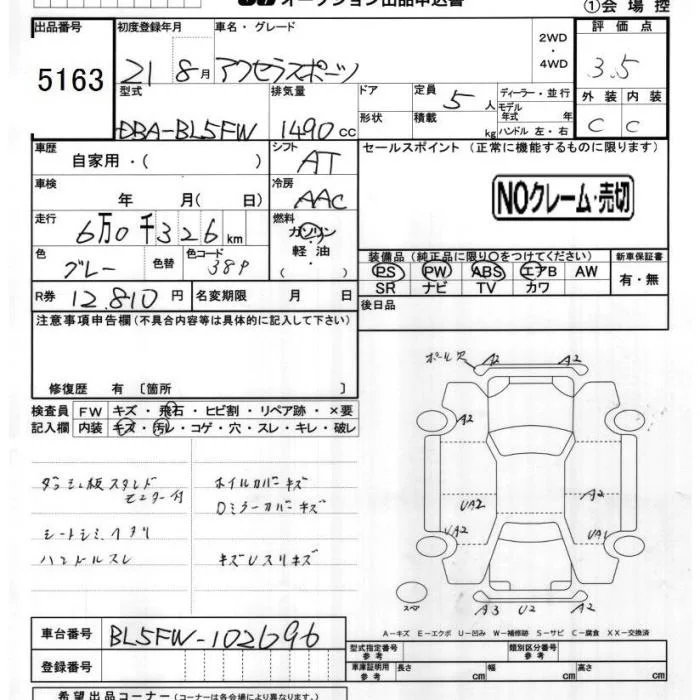 オークション出品申込書 ①会場控
出品番号 初度登録年月 車名・グレード 2WD・4WD 評価点
5163 21 8月 アクセラスポーツ 3.5
型式 排気量 ドア 定員 5人 ディーラー・並行 外装 内装
DBA-BL5FW 1490cc 形状 積載 kg モデル年式 年 ハンドル 左・右 C C
車歴 自家用・( ) シフト AT セールスポイント (正常に機能するものに限ります)
車検 年 月( 日) 冷房 AAC NOクレーム・売切
走行 6万0千326km 燃料 ガソリン・軽油・( )
色 グレー 色替 色コード 38P 装備品 (純正品に限り○をつけてください) 新車保証書
PS PW ABS エアB AW 有・無
SR ナビ TV カワ
R券 12,810円 名変期限 月 日 後日品
注意事項申告欄 (不具合内容等は具体的に記入して下さい)
修復歴 有 〔箇所 〕
検査員 FW キズ・飛石・ヒビ割・リペア跡・×要
記入欄 内装 キズ・汚レ・コゲ・穴・スレ・キレ・破レ
ホイルカバーキズ
Dミラーカバーキズ
シートシミ、ヘタリ
ハンドルスレ キズUスリキズ
A2 A2
A2
UA2 A2
UA2 UA1
スペア A3 U2 A2
A-キズ E-エクボ U-凹み W-補修跡 S-サビ C-腐食 XX-交換済
車台番号 BL5FW-102696
登録番号
型式指定番号 参考 類別区分番号 参考
車庫証明用 参考 長さ cm 幅 cm 高さ cm
希望出品コーナー (コーナーは各会場により異なります。)